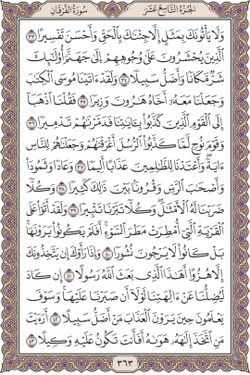 سُورَةُ الفُرْقَانِ الجُزْءُ التَّاسِعَ عَشَرَ
وَلَا يَأْتُونَكَ بِمَثَلٍ إِلَّا جِئْنَاكَ بِالْحَقِّ وَأَحْسَنَ تَفْسِيرًا ٣٣
الَّذِينَ يُحْشَرُونَ عَلَى وُجُوهِهِمْ إِلَى جَهَنَّمَ أُولَئِكَ
شَرٌّ مَكَانًا وَأَضَلُّ سَبِيلًا ٣٤ وَلَقَدْ آتَيْنَا مُوسَى الْكِتَابَ
وَجَعَلْنَا مَعَهُ أَخَاهُ هَارُونَ وَزِيرًا ٣٥ فَقُلْنَا اذْهَبَا
إِلَى الْقَوْمِ الَّذِينَ كَذَّبُوا بِآيَاتِنَا فَدَمَّرْنَاهُمْ تَدْمِيرًا ٣٦
وَقَوْمَ نُوحٍ لَمَّا كَذَّبُوا الرُّسُلَ أَغْرَقْنَاهُمْ وَجَعَلْنَاهُمْ لِلنَّاسِ
آيَةً وَأَعْتَدْنَا لِلظَّالِمِينَ عَذَابًا أَلِيمًا ٣٧ وَعَادًا وَثَمُودَا
وَأَصْحَابَ الرَّسِّ وَقُرُونًا بَيْنَ ذَلِكَ كَثِيرًا ٣٨ وَكُلًّا
ضَرَبْنَا لَهُ الْأَمْثَالَ وَكُلًّا تَبَّرْنَا تَتْبِيرًا ٣٩ وَلَقَدْ أَتَوْا عَلَى
الْقَرْيَةِ الَّتِي أُمْطِرَتْ مَطَرَ السَّوْءِ أَفَلَمْ يَكُونُوا يَرَوْنَهَا
بَلْ كَانُوا لَا يَرْجُونَ نُشُورًا ٤٠ وَإِذَا رَأَوْكَ إِنْ يَتَّخِذُونَكَ
إِلَّا هُزُوًا أَهَذَا الَّذِي بَعَثَ اللَّهُ رَسُولًا ٤١ إِنْ كَادَ
لَيُضِلُّنَا عَنْ آلِهَتِنَا لَوْلَا أَنْ صَبَرْنَا عَلَيْهَا وَسَوْفَ
يَعْلَمُونَ حِينَ يَرَوْنَ الْعَذَابَ مَنْ أَضَلُّ سَبِيلًا ٤٢ أَرَأَيْتَ
مَنِ اتَّخَذَ إِلَهَهُ هَوَاهُ أَفَأَنْتَ تَكُونُ عَلَيْهِ وَكِيلًا ٤٣
٣٦٣